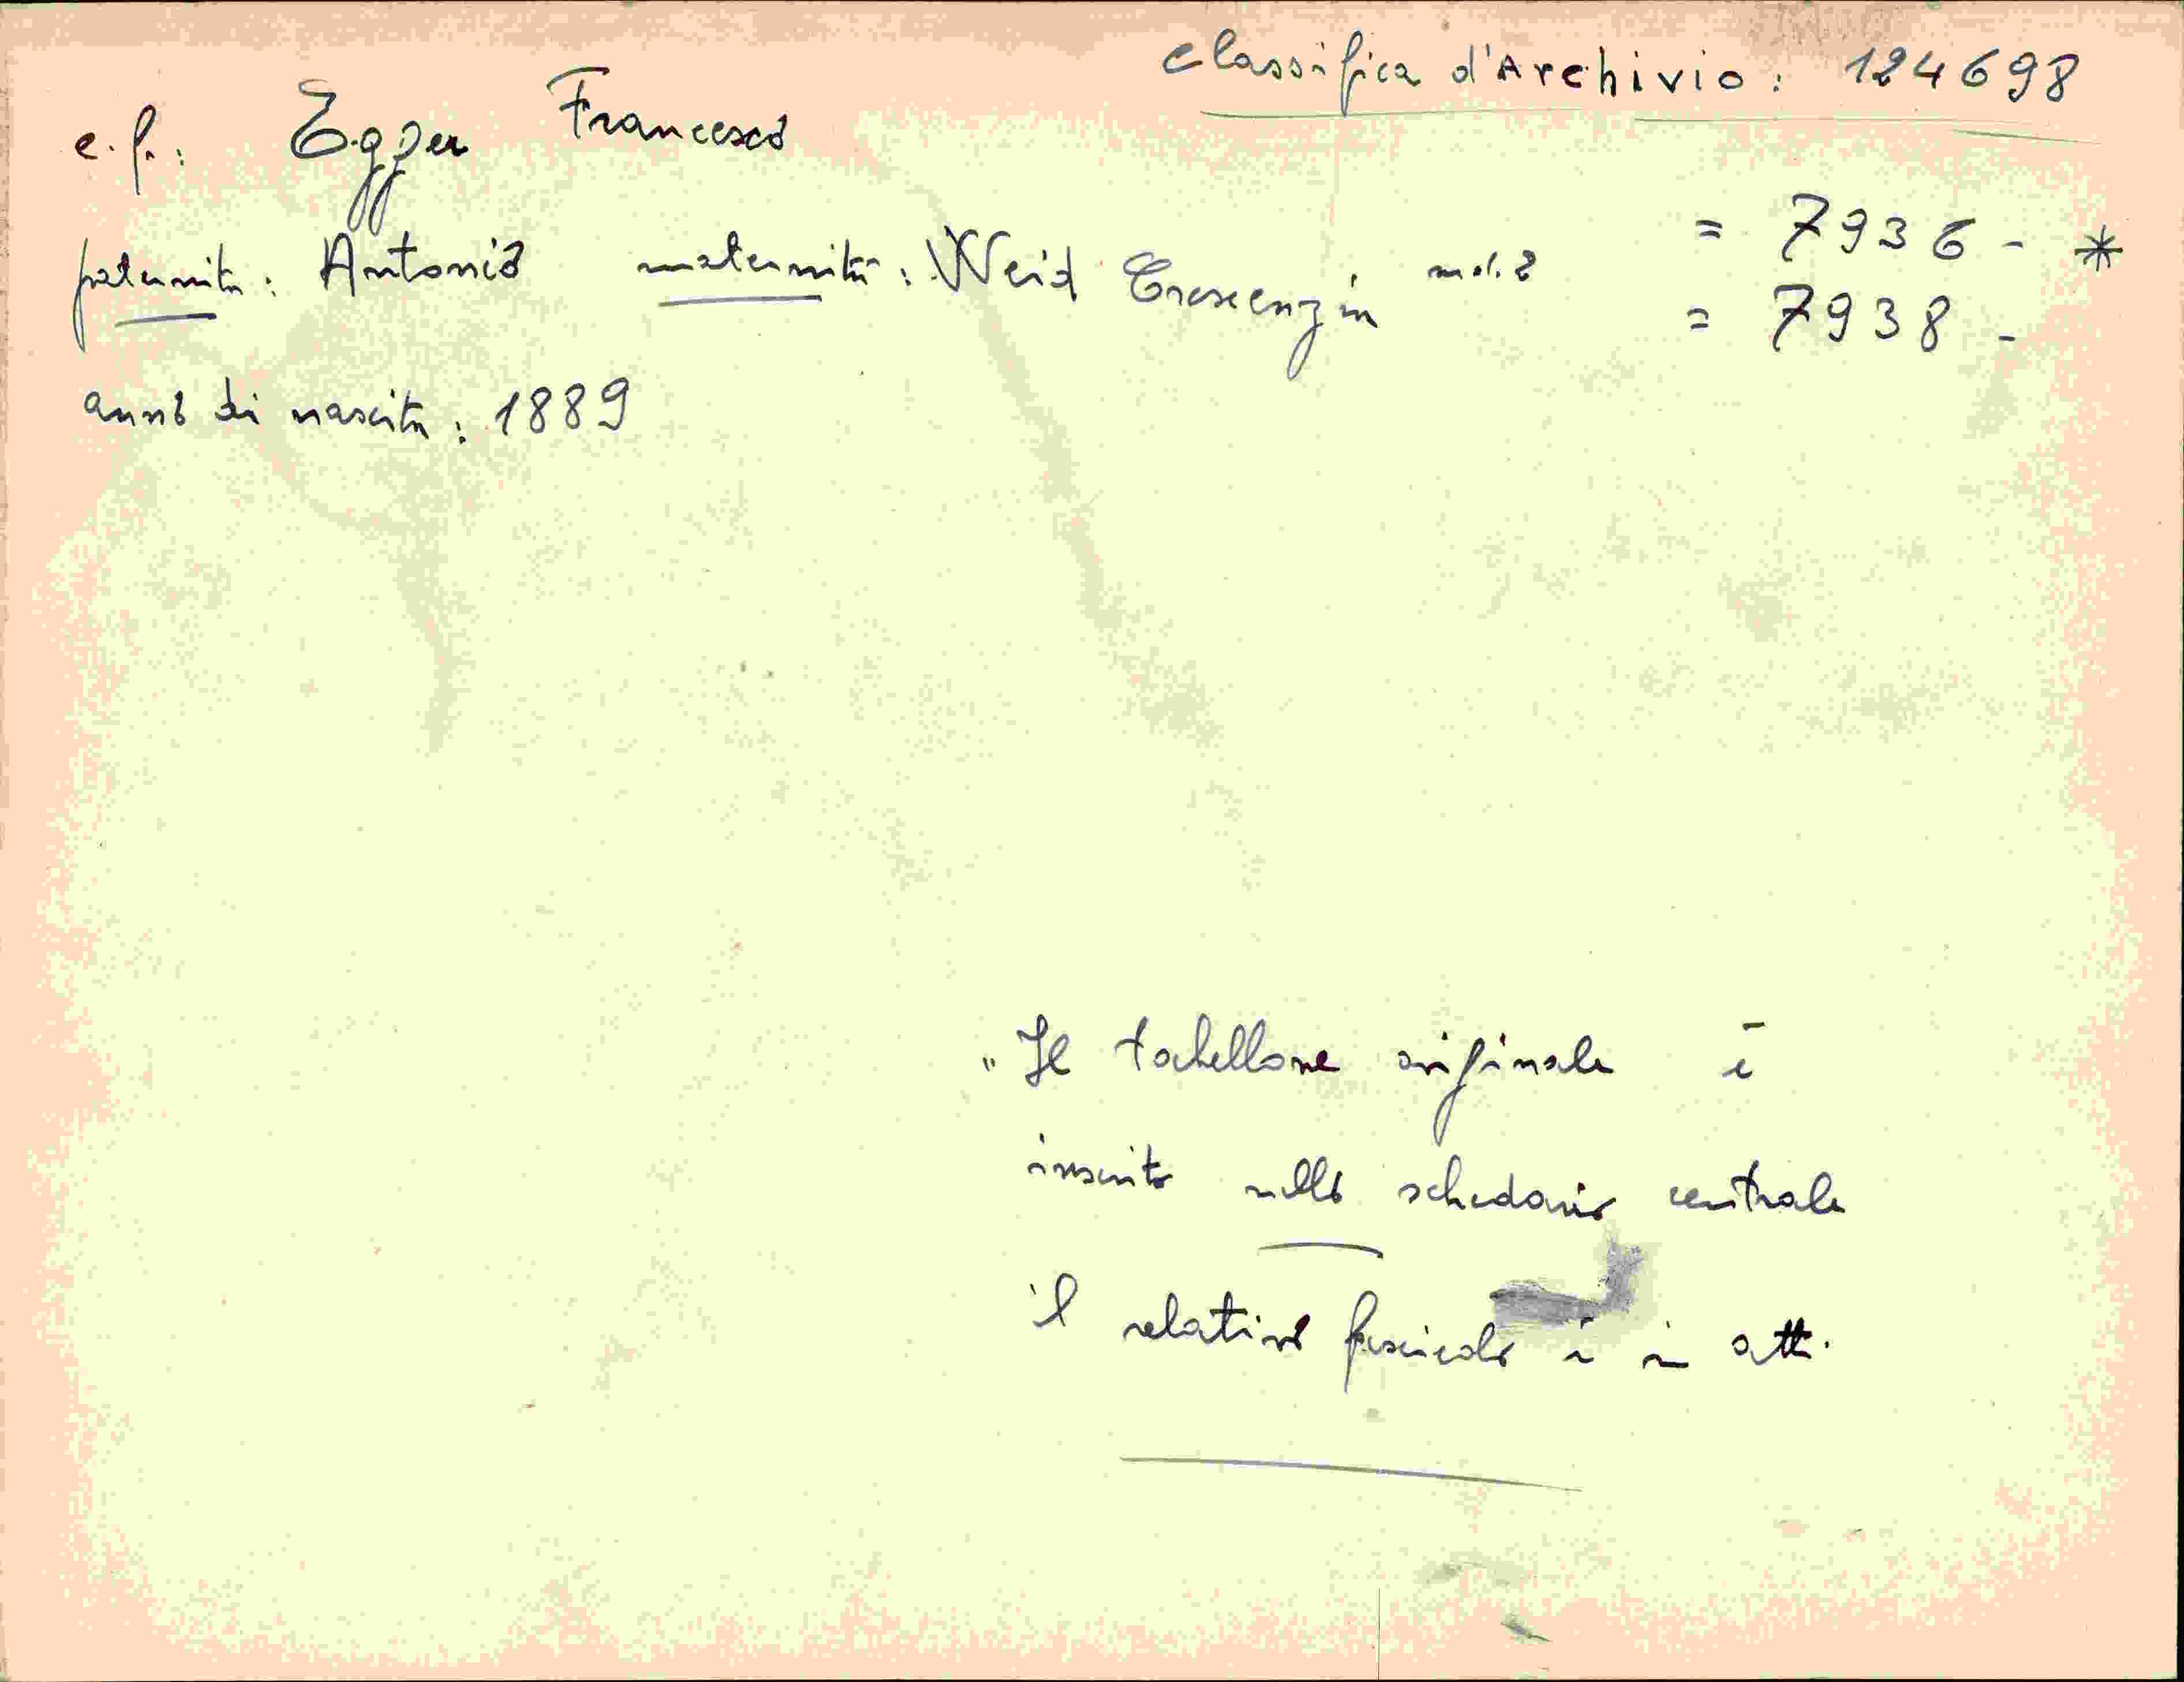 Classifica d'Archivio: 124698
e.f.: Egger Francesco
paternità: Antonio maternità: Weid Crescenzia
= 7936 - *
= 7938 -
anno di nascita: 1889
"Il tabellone originale è
inserito nello schedario centrale
il relativo fascicolo è in att.